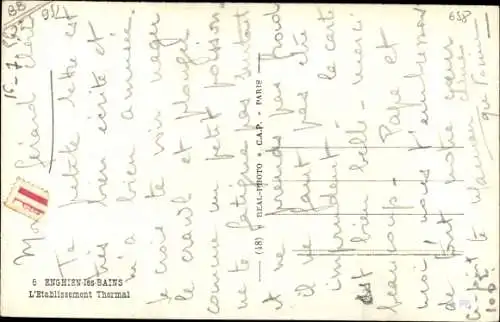 15-7
Mon Gérard Chéri
Ta petite lettre est
très bien écrite et
m'a bien amusée.
Je crois te voir nager
le crawl et plonger
comme un petit poisson -
ne te fatigue pas surtout
et ne prends pas froid
il ne faut pas être
imprudent - la carte
est bien belle - merci
beaucoup - Papa et
moi nous t'embrassons
de tout notre cœur
ta Maman chérie
Ci-joint
100
qui
6 ENGHIEN-les-BAINS
L'Etablissement Thermal
(18) REAL-PHOTO • C.A.P. • PARIS
658